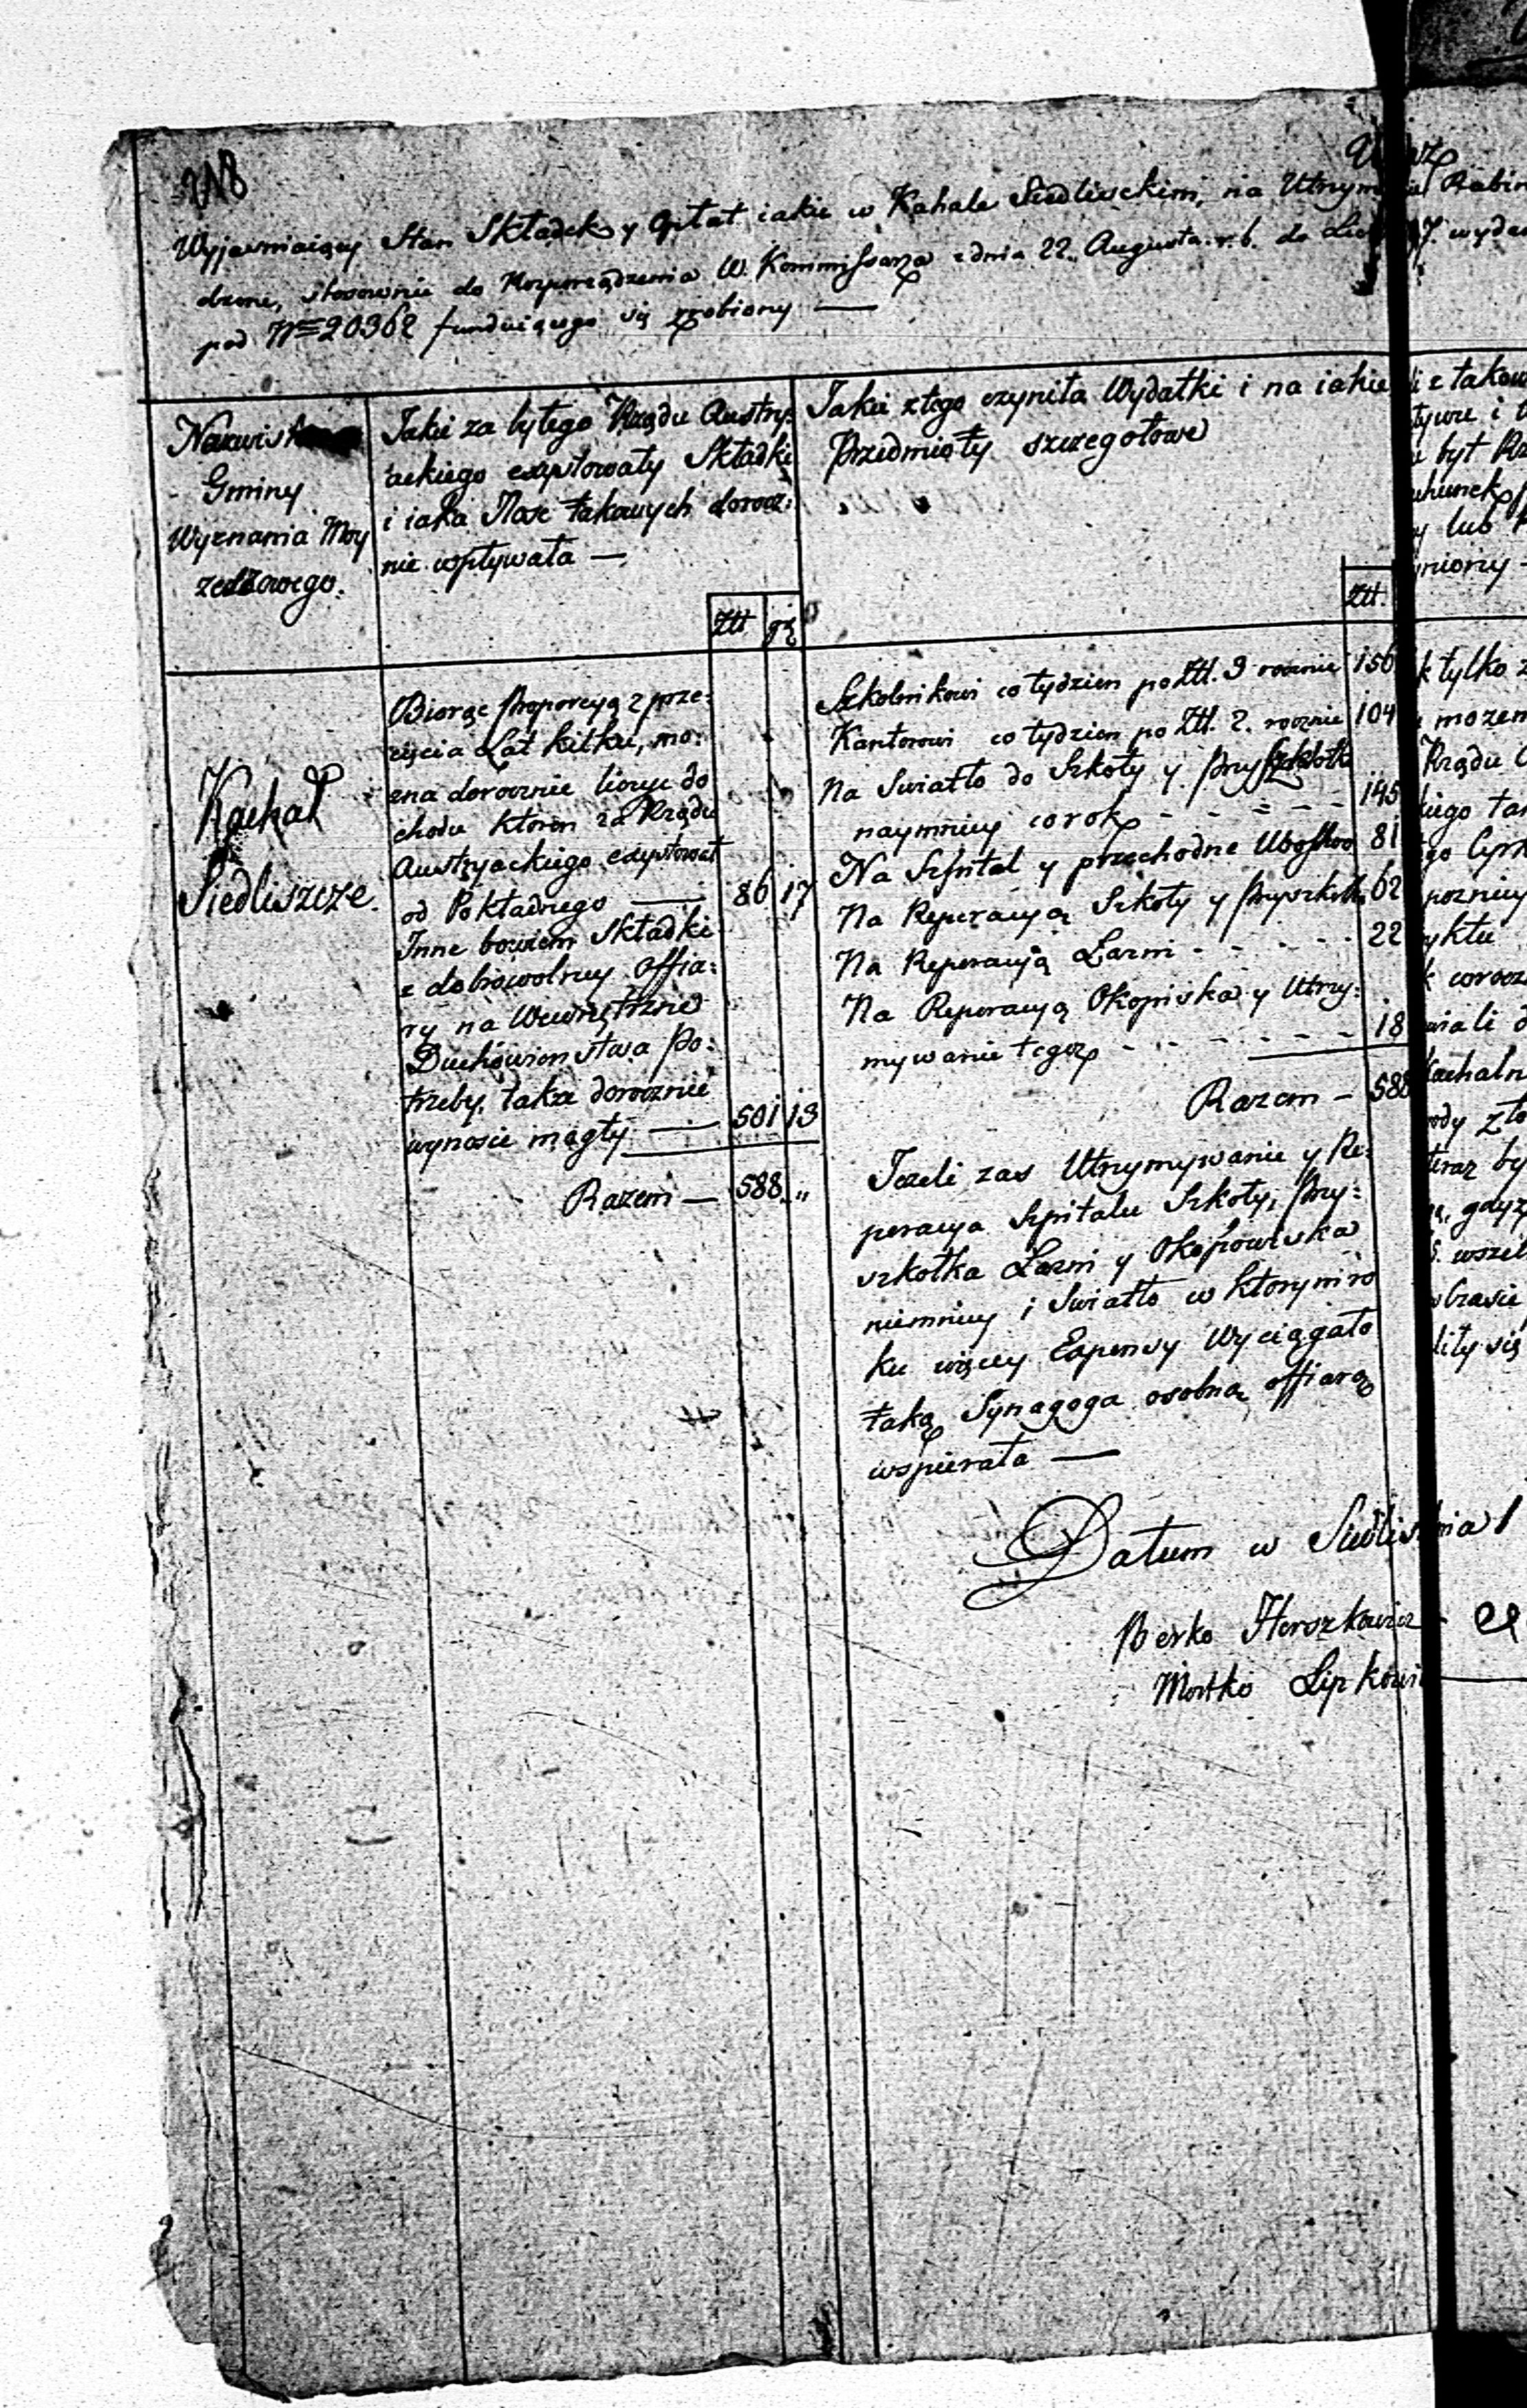 218
Wykaz
Wyjaśniaiący Stan Składek y Opłat iakie w Kahale Siedlisckim, na Utrzym Rabin
dzone, stosownie do Rozporządzenia W. Kommissarza z dnia 22. Augusta r. b. do 7. wyda
pod Nro 20362 funduiącego się zrobiony —
Nazwisko
Gminy
Wyznania Moy
zeszowego.
Jakie za byłego Rządu Austry:
ackiego exystowały Składki
i iaka Massa takowych dorocz:
nie wpływała —
Złł gr
Jakie z tego czyniła Wydatki i na iakie
Przedmioty szczegołowe
Złł.
li z takow
tywre i
byt Rz
chunek
y lub
yniony -
Kachał
Siedliszcze.
Biorąc proporcyą z prze:
cięcia Lat kilku, mo:
zna dorocznie liczyć do
chodu ktoren za Rządu
Austryackiego exystował
od Pokładnego — 86 17
Inne bowiem Składki
z dobrowolney offia:
ry na Wewnętrzne
Duchowienstwa Po:
trzeby, taka dorocznie
wynosic mogły — 501 13
Razem — 588 „
Szkolnikowi co tydzien po Złł. 3 rocznie 156
Kantorowi co tydzien po Złł. 2. rocznie 104
Na Swiatło do Szkoły y przyszkołka
naymniey co rok - - - - 145
Na Szpital y przechodne Ubostwo 81
Na Reperacyą Szkoły y przyszkołk 62
Na Reperacyą Łazni - - - - - 22
Na Reperacyą Okopiska y Utrzy:
mywanie tegoż - - - - - - 18
Razem - 588
Jezeli zas Utrzymywanie y Re:
peracya Szpitalu Szkoły, przy:
szkołka Łazni y Okopowiska
niemniey i Swiatło w ktorym ro
ku więcey Expensy Wyciągało
taką Synagoga osobną offiarą
wspierała —
k tylko z
mozem
Rządu
kiego tar
go
pozniey
yktu
k corocz
wiali
Kachaln
ody zło
teraz by
ą, gdyż
wszel
obrasie
lity się
Datum w Siedlis nia 1
Berko Herszkowicz
Mortko Lipkowi